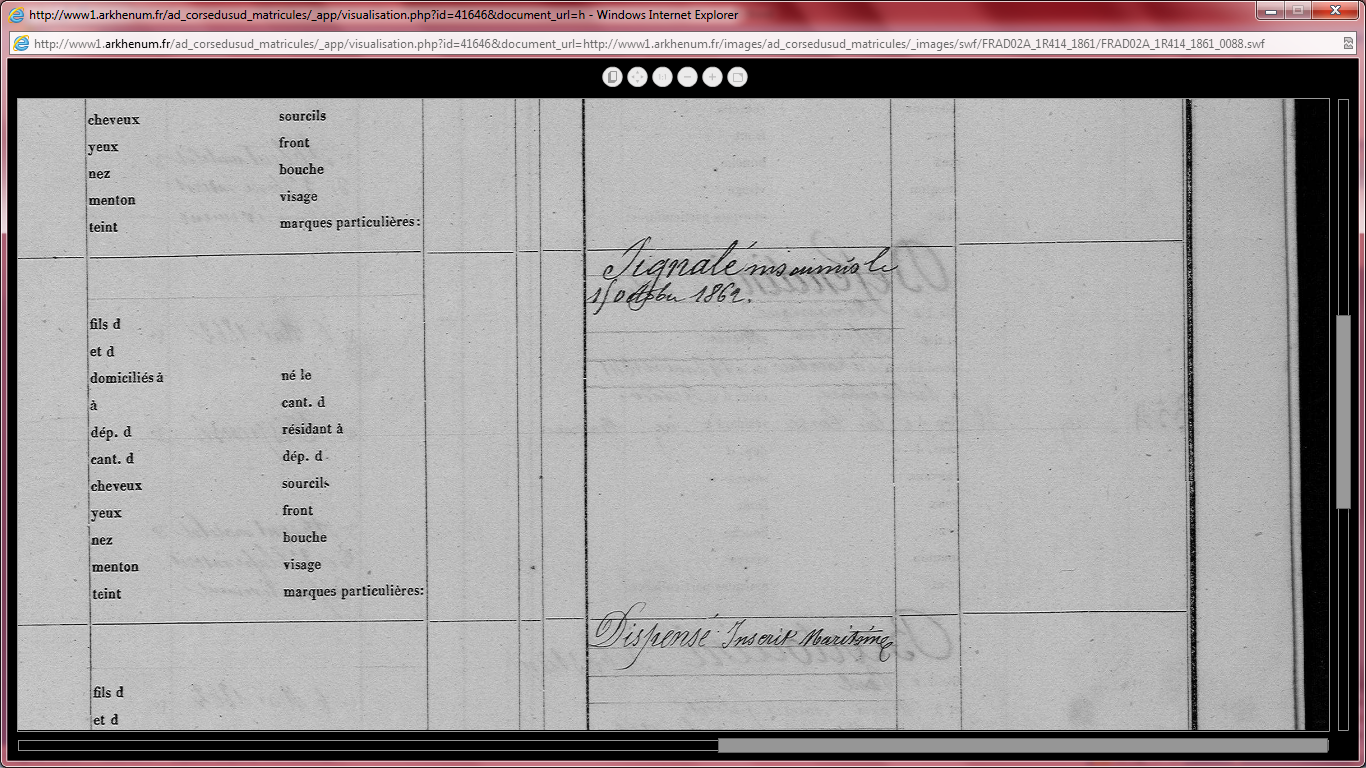 http://www1.arkhenum.fr/ad_corsedusud_matricules/_app/visualisation.php?id=41646&document_url=h - Windows Internet Explorer
http://www1.arkhenum.fr/ad_corsedusud_matricules/_app/visualisation.php?id=41646&document_url=http://www1.arkhenum.fr/images/ad_corsedusud_matricules/_images/swf/FRAD02A_1R414_1861/FRAD02A_1R414_1861_0088.swf
cheveux sourcils
yeux front
nez bouche
menton visage
teint marques particulières:
Signalé insoumis le
octobre 1862.
fils d
et d
domiciliés à né le
à cant. d
dép. d résidant à
cant. d dép. d
cheveux sourcils
yeux front
nez bouche
menton visage
teint marques particulières:
Dispensé Inscrit Maritime
fils d
et d